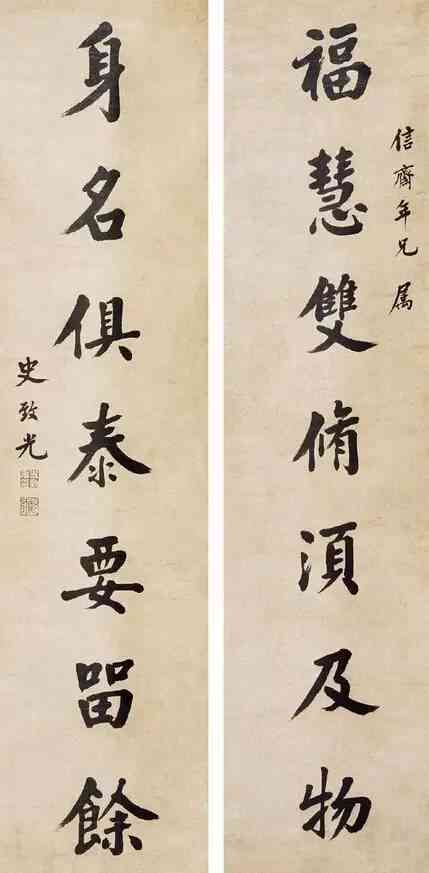 信齋年兄 属
福慧雙脩湏及物
身名俱泰要㽞餘
史致光